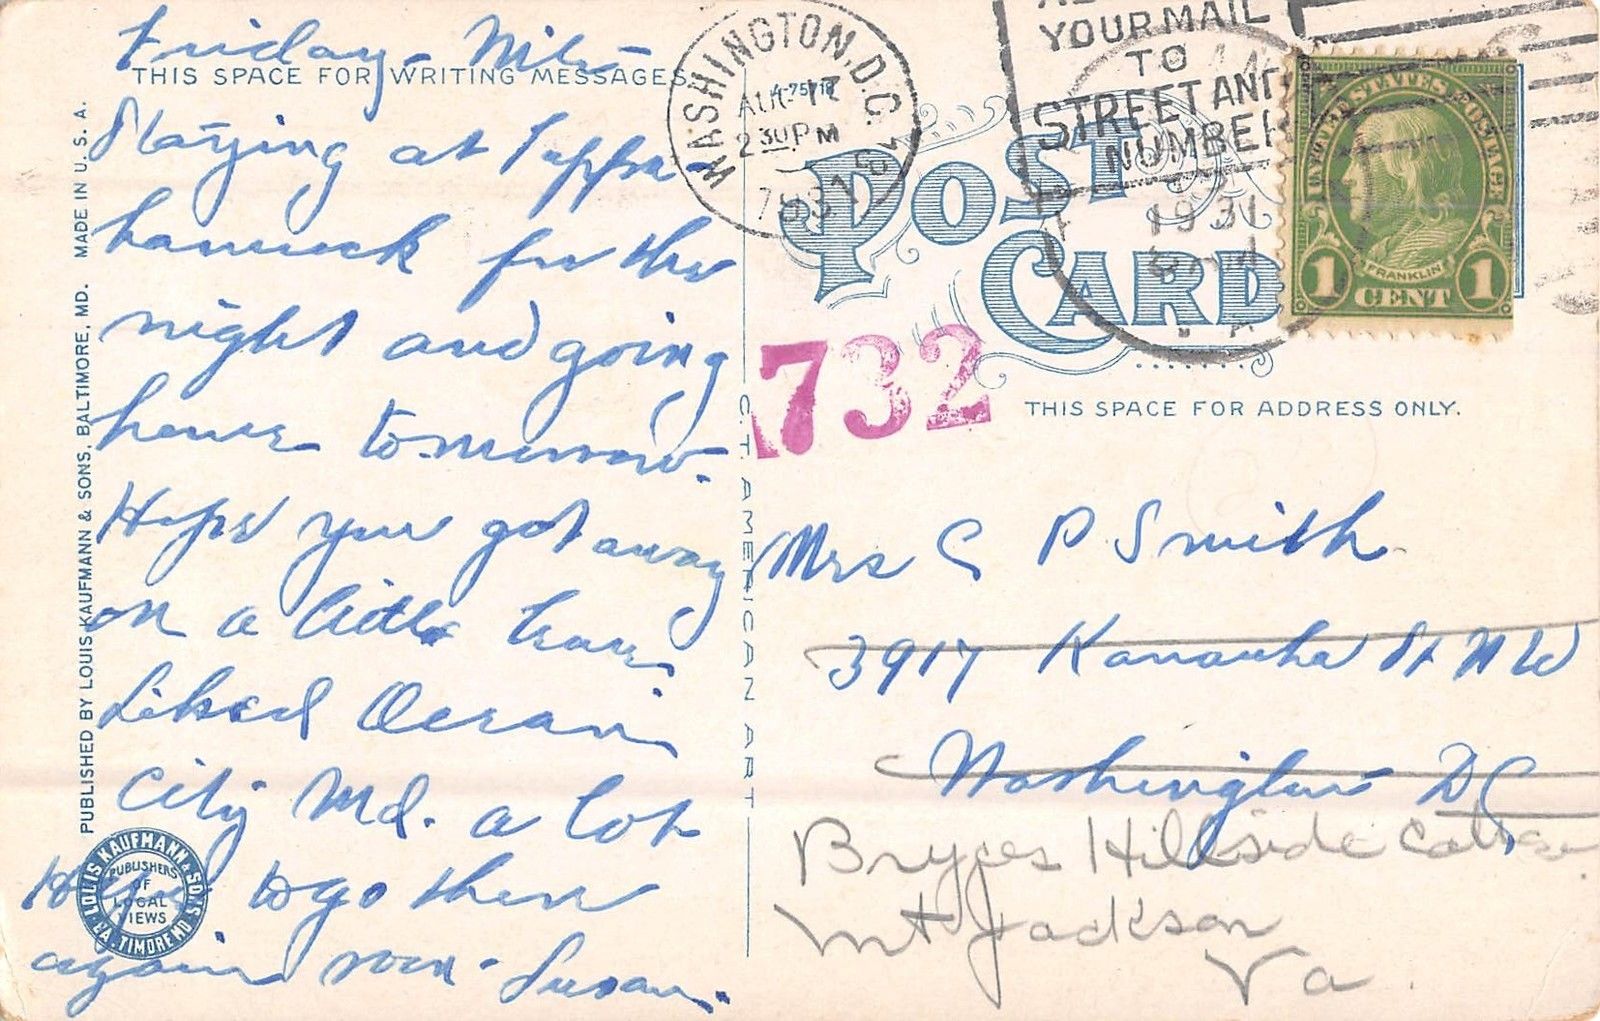 Friday - Nite
THIS SPACE FOR WRITING MESSAGES
Staying at Tappa-
hannock for the
night and going
home tomorrow.
Hope you got away
on a little tour
Liked Ocean
City Md. a lot
to go there
again soon - Susan.
PUBLISHED BY LOUIS KAUFMANN & SONS, BALTIMORE, MD. MADE IN U. S. A.
LOUIS KAUFMANN & SONS
BALTIMORE MD
PUBLISHERS
OF
LOCAL
VIEWS
C. T. AMERICAN ART
WASHINGTON, D.C.
AUG 17
2 30 PM
1931
A-75718
YOUR MAIL
TO
STREET AND
NUMBER
1931
UNITED STATES POSTAGE
FRANKLIN
1 CENT 1
POST
CARD
732
THIS SPACE FOR ADDRESS ONLY.
Mrs C P Smith
3917 Kanawha St N W
Washington DC
Bryces Hillside Cottage
Mt Jackson
Va.